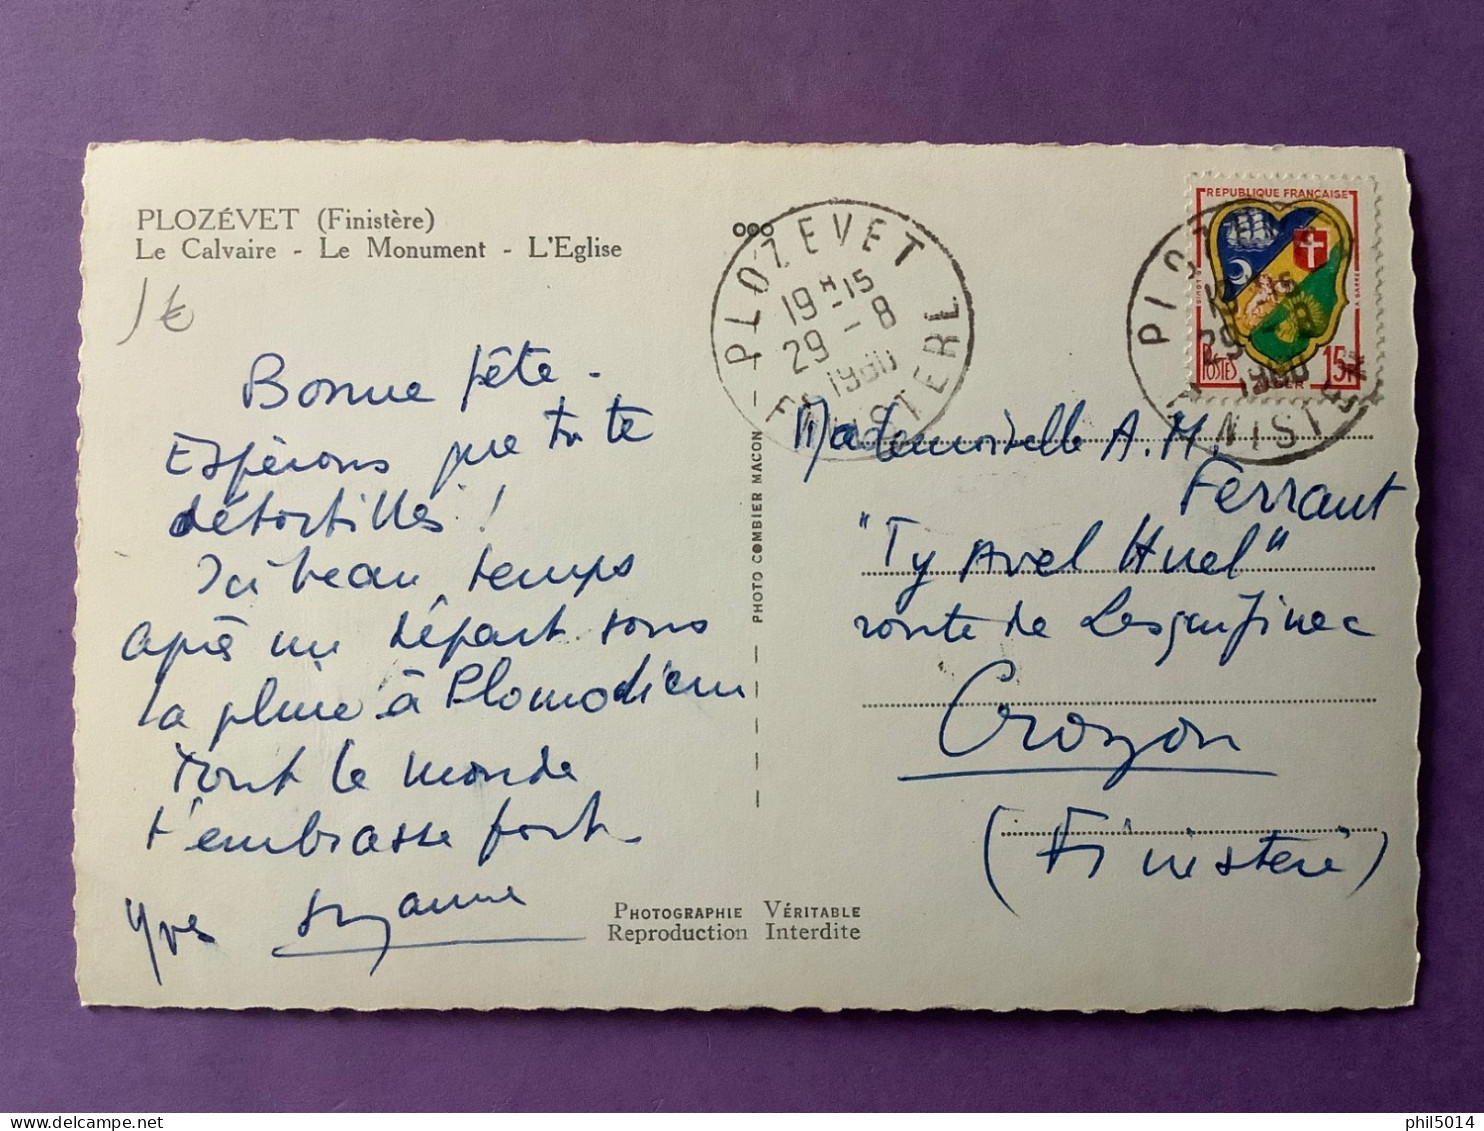 PLOZÉVET (Finistère)
Le Calvaire - Le Monument - L'Eglise
1€
Bonne fête.
Espérons que tu te
détortilles !
Ici beau temps
après un départ sous
la pluie à Plomodiern
Tout le monde
t'embrasse fort
Yves Suzanne
PLOZEVET
19H-15
29-8
1960
FINISTERE
PHOTO COMBIER MACON
PHOTOGRAPHIE VÉRITABLE
Reproduction Interdite
REPUBLIQUE FRANÇAISE
POSTES
15F
ALGER
PLOZEVET
19H-15
29-8
1960
FINISTERE
Mademoiselle A.M.
Ferrant
"Ty Avel Huel"
route de
Crozon
(Finistère)
phil5014